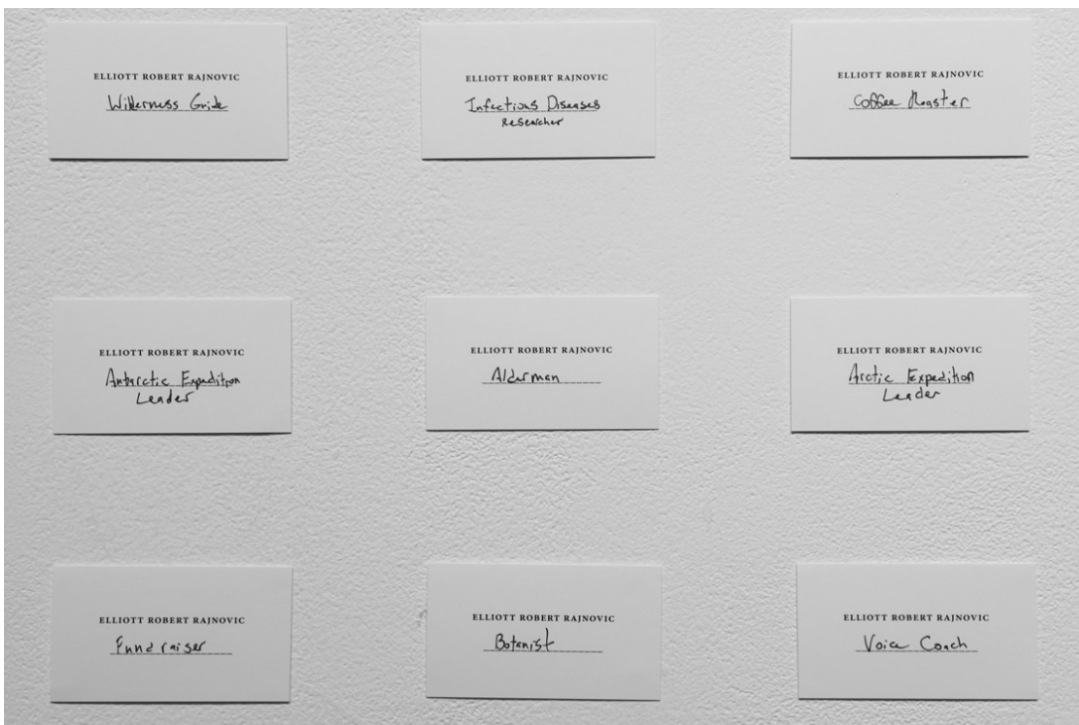 ELLIOTT ROBERT RAJNOVIC
Wilderness Guide
ELLIOTT ROBERT RAJNOVIC
Infectious Diseases
Researcher
ELLIOTT ROBERT RAJNOVIC
Coffee Roaster
ELLIOTT ROBERT RAJNOVIC
Antarctic Expedition
Leader
ELLIOTT ROBERT RAJNOVIC
Alderman
ELLIOTT ROBERT RAJNOVIC
Arctic Expedition
Leader
ELLIOTT ROBERT RAJNOVIC
Fundraiser
ELLIOTT ROBERT RAJNOVIC
Botanist
ELLIOTT ROBERT RAJNOVIC
Voice Coach